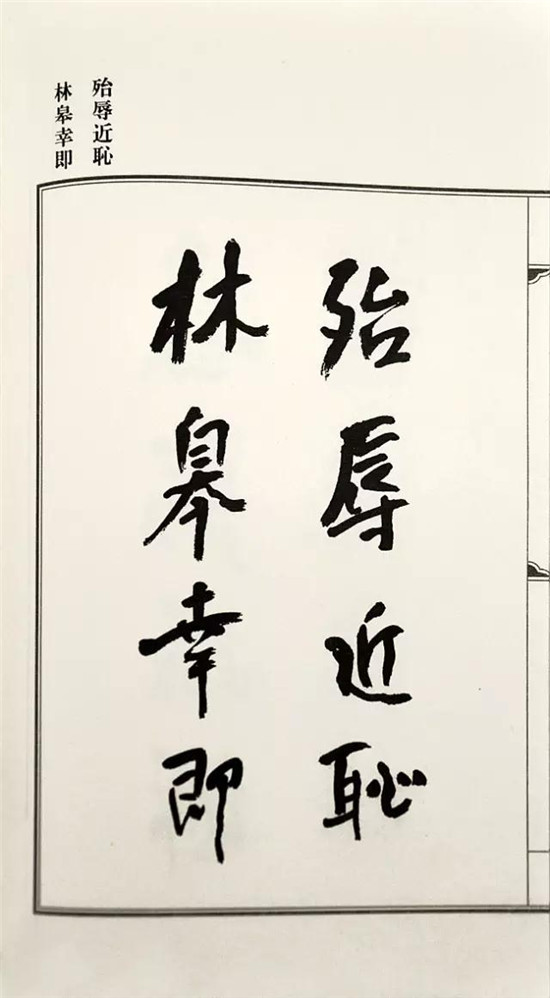 殆辱近恥
林皋幸即
殆辱近恥
林皋幸即